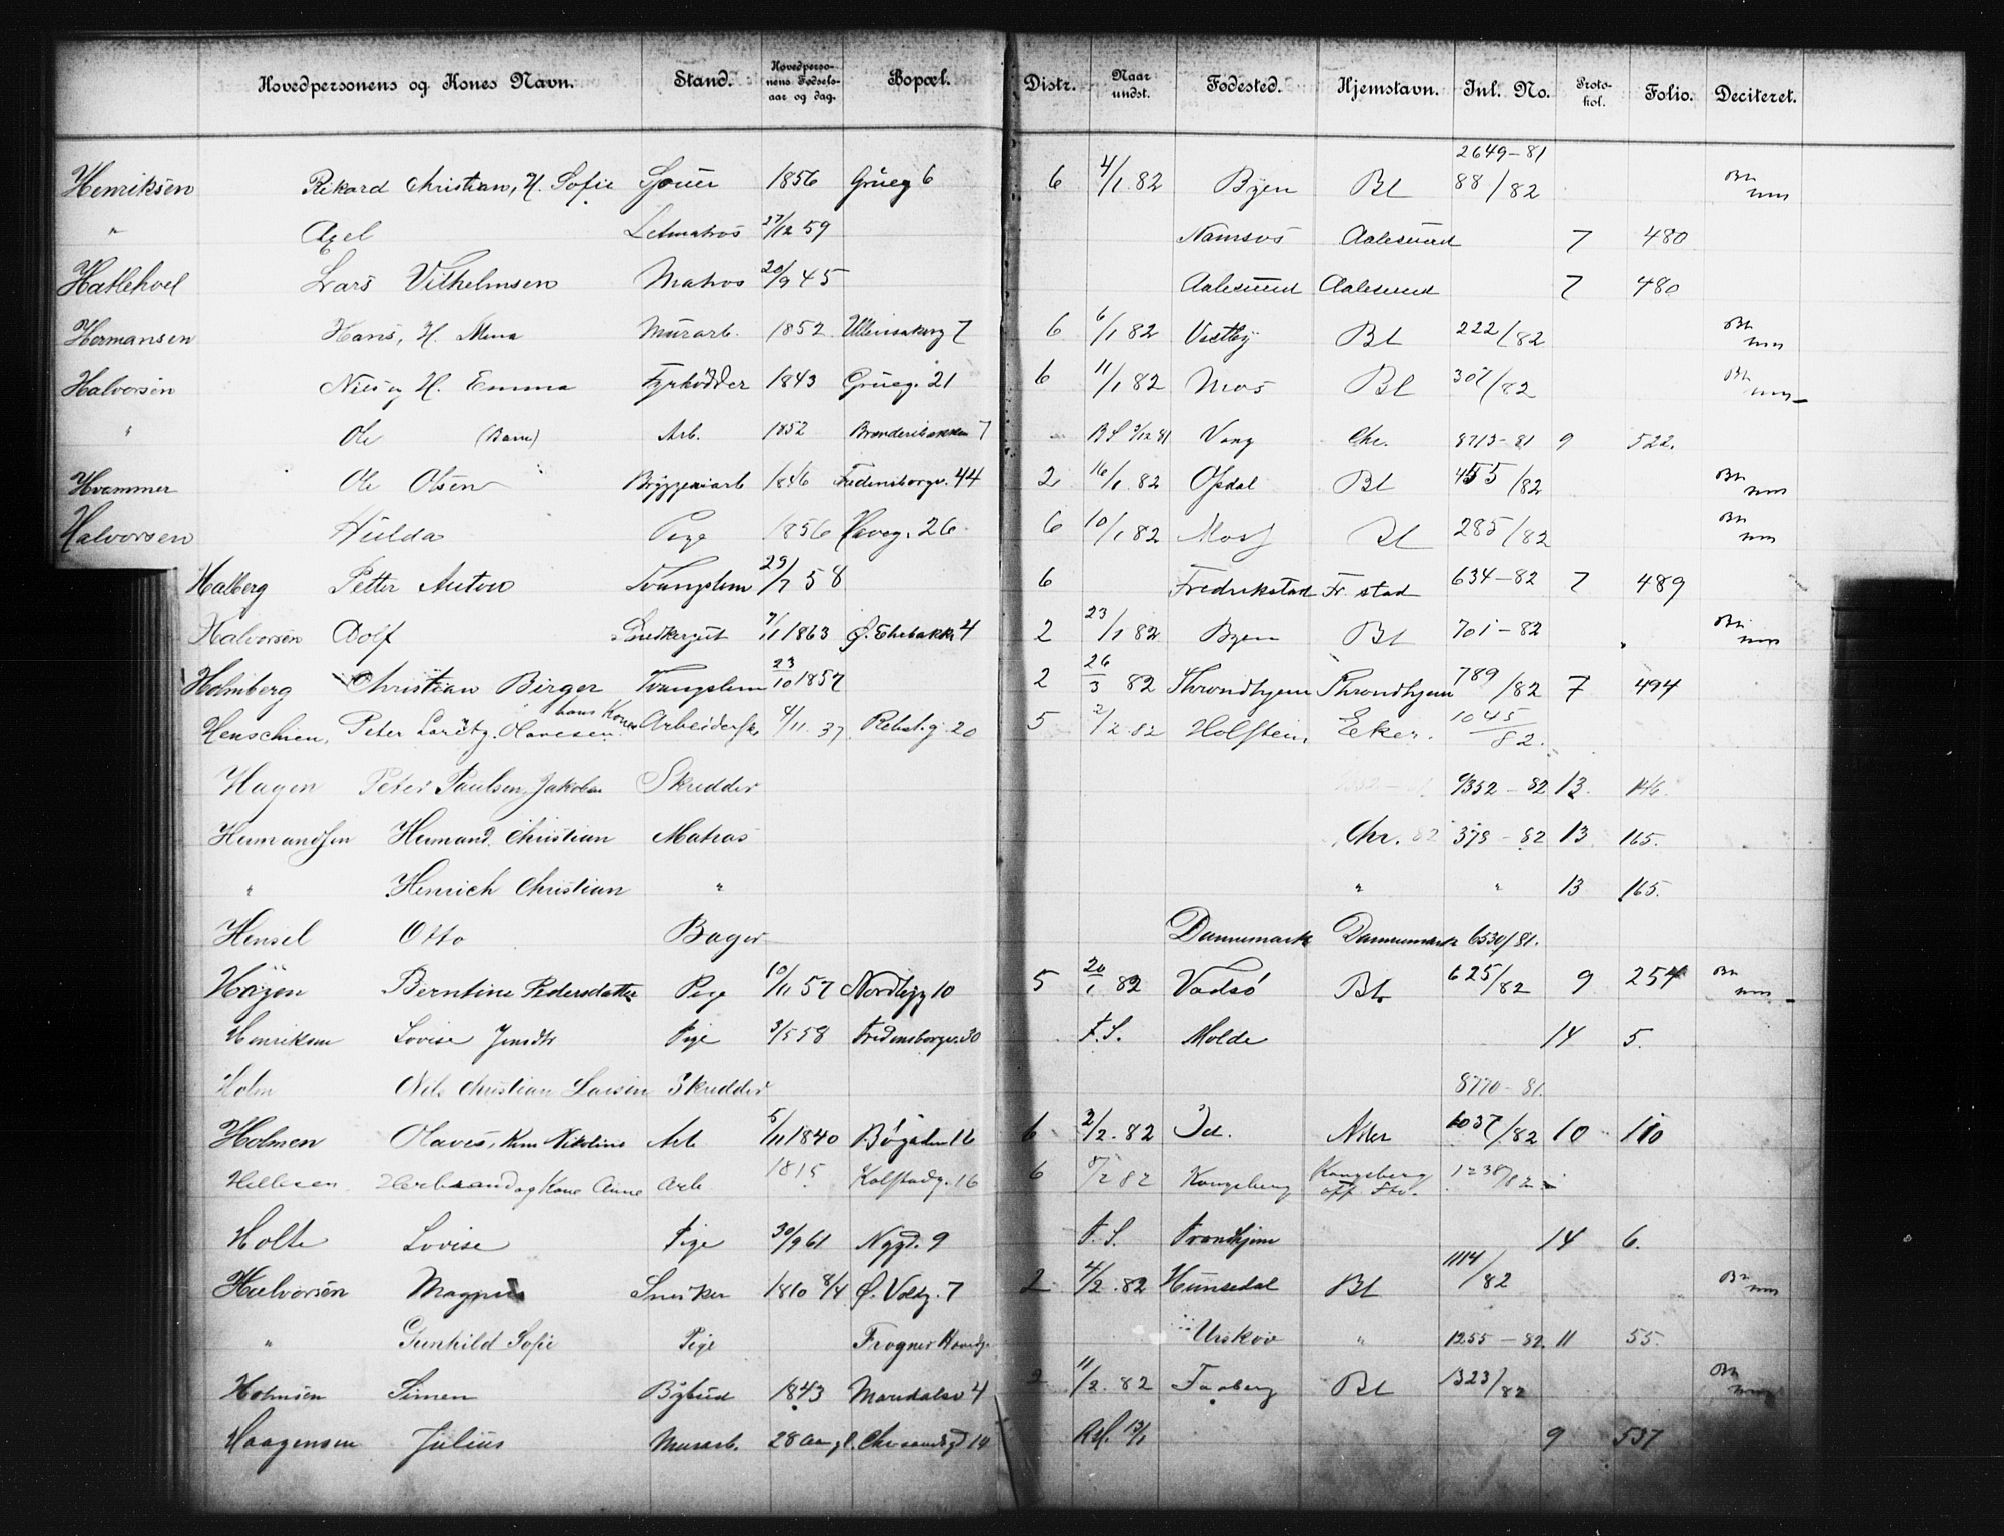 Hovedpersonens og Kones Navn. Stand. Hovedperso-nens Fødsels-aar og dag. Bopæl. Distr. Naar undst. Fødested. Hjemstavn. Inl. No. Proto-kol. Folio. Deciteret.
Henriksen Rikard Christian, H. Sofie 1856 Grueg 6 6 4/1. 82 Byen Bl 2649-81 88/82
" Axel Letmatros 27/12 59 Namsos Aalesund 7 480
Hatlehol Lars Vilhelmsen Matros 20/9 45 Aalesund Aalesund 7 480
Hermansen Hans, H. Mina Murarb. 1852 Ullensakerg 7 6 6/1 82 Vestby Bl 222/82
Halvorsen Niels H. Emma Fyrbødder 1843 Grueg. 21 6 11/1 82 Mos Bl 307/82
" Ole (Barn) Arb. 1852 Brenderibakken 7 Vang Chr. 8713-81 9 522.
Hvammer Ole Olsen Bryggeriarb 1846 Fredensborgv. 44 2 16/1. 82 Opdal Bl 455/82
Halvorsen Hulda Pige 1856 26 6 10/1 82 Moss Bl 285/82
Halberg Petter Anton Tvangslem 29/7 58 6 Fredrikstad Fr. stad 634-82 7 489
Halvorsen Adolf Snedkergut 7/11 1863 4 2 23/1 82 Byen Bl 701-82
Holmberg Christian Birger Tvangslem 23/10 1857 2 26/3 82 Throndhjem Throndhjem 789/82 7 494
Henschien, Peter Loretz. Olavesen hans Kone Arbeidersk 4/11. 37. Rebslg 20 5 2/2 82 Holstein, Eker. 1045/82.
Hagen Peter Paulsen, Jakobin Skredder 9352-82 13. 146.
Hermandsen Hermand Christian Matros Chr. 82 378-82 13 165.
" Henrich Christian " " " 13 165.
Hensel Otto Bager Dannemark Dannemark 6530/81.
Høyen Berntine Pedersdatter Pige 10/11 57 Nordbyg 10 5 20/1 82 Vadsø Bl. 625/82 9 254
Henriksen Lovise Jensdtr Pige 3/5 58 Fredensborgv. 30 F. S. Molde 14 5.
Holm Nils Christian Larsen Skredder 8770-81.
Holmen Olaves, Kone Nikoline Arb 5/11 1840 Bøgaten 16 6 2/2. 82 Id. 1037/82 10 110
Hellesen Herbrand og Kone Anne Arb 1815 Kolstadg. 16 6 8/2 82 Kongsberg Kongsberg 1238/82
Holte Lovise Pige 30/9 61 Nygd. 9 F. S. Trondhjem 14 6.
Halvorsen Magnus Snekker 1810 8/4 Ø. Voldg. 7 2 4/2. 82 Hemsedal Bl 1114/82
" Gunhild Sofie Pige Frogner Hovedg. Urskov " 1255-82. 11 55.
Holmsen Simen Bybud 1843 Maridalsv 4 2 11/2. 82 Faaberg Bl 1323/82
Haagensen Julius Murarb. 28 Aar gl. Chr.sandsgd 14 13/1 9 537